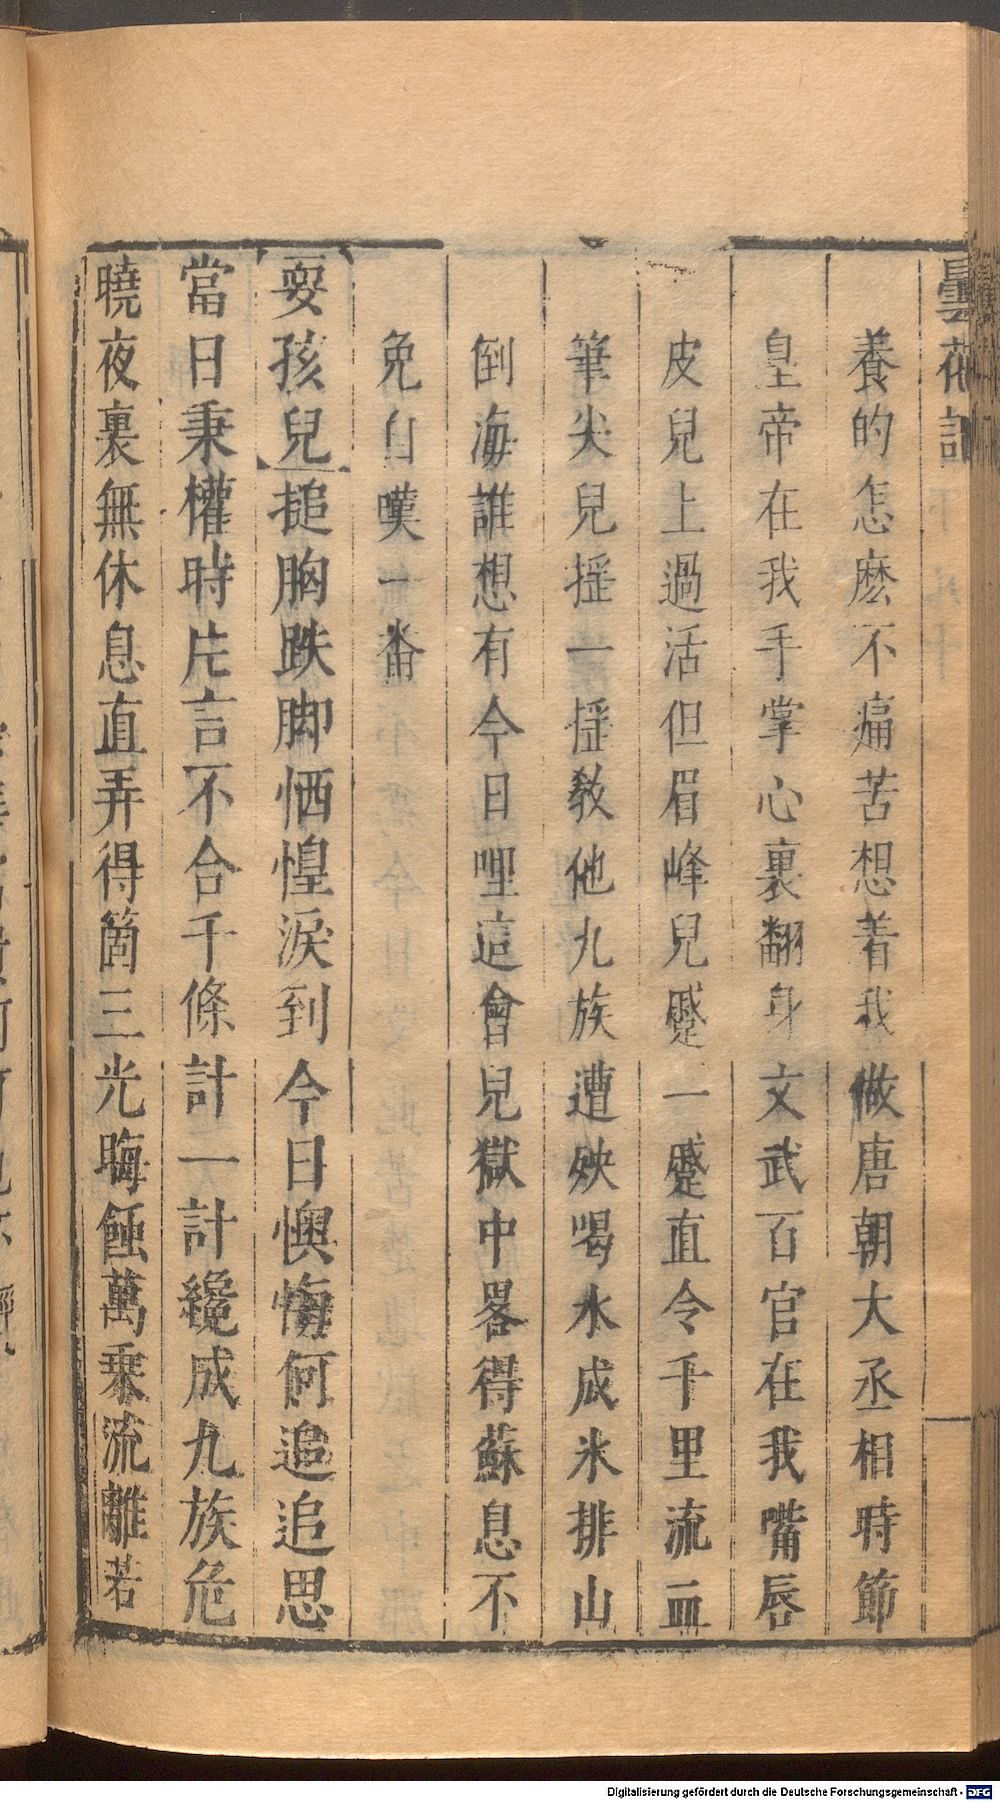 曇花記
養的怎麽不痛苦想着我做唐朝大丞相時節
皇帝在我手掌心裏翻身文武百官在我嘴唇
皮兒上過活但眉峰兒蹙一蹙直令千里流血
筆尖兒揺一揺敎他九族遭殃喝水成氷排山
倒海誰想有今日哩這會兒獄中畧得蘇息不
免自嘆一番
耍孩兒搥胸跌脚恓惶淚到今日懊悔何追追思
當日秉權時片言不合千條計一計纔成九族危
曉夜裏無休息直弄得箇三光晦蝕萬乘流離若
Digitalisierung gefördert durch die Deutsche Forschungsgemeinschaft - DFG